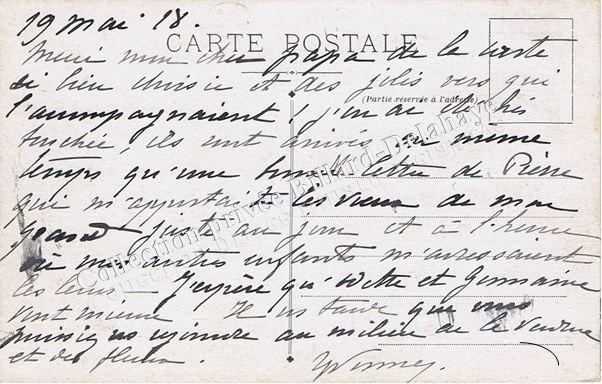 19 mai 18.
CARTE POSTALE
Merci mon cher papa de la carte
si bien choisie et des jolis vers qui
(Partie réservée à l'adresse)
l'accompagnaient ! j'en ai été très
touchée, ils sont arrivés en même
temps qu'une bonne lettre de Pierre
qui m'apportait les vœux de mon
juste au jour et à l'heure
où mes autres enfants m'adressaient
les leurs - J'espère qu' et Germaine
vont mieux Il me tarde que vous
puissiez nous rejoindre au milieu de la verdure
et des fleurs.
Collection privée Billard-Delahaye